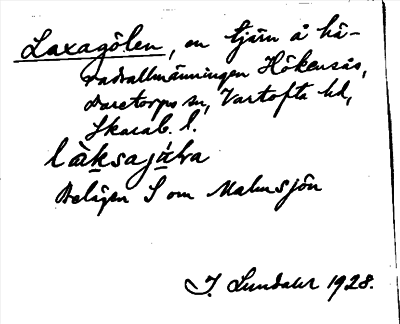 Laxagölen, en tjärn å hä-
radsallmänningen Hökensås,
Daretorps sn, Vartofta hd,
Skarab. l.
Belägen S om Malmsjön
J. Lundahl 1928.